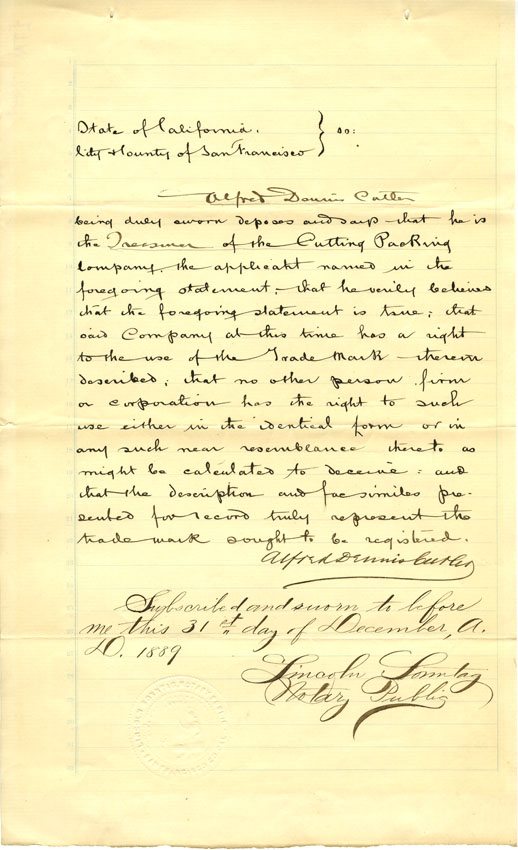 State of California.
City & County of San Francisco } ss:
Alfred Dennis Cutler
being duly sworn deposes and says that he is
the Treasurer of the Cutting Packing
Company, the applicant named in the
foregoing statement; that he verily believes
that the foregoing statement is true; that
said Company at this time has a right
to the use of the Trade Mark therein
described; that no other person firm
or corporation has the right to such
use either in the identical form or in
any such near resemblance thereto as
might be calculated to deceive: and
that the description and facsimiles pre-
sented for record truly represent the
trade mark sought to be registered.
Alfred Dennis Cutler
Subscribed and sworn to before
me this 31st day of December, A.
D. 1889
Lincoln Sonntag
Notary Public